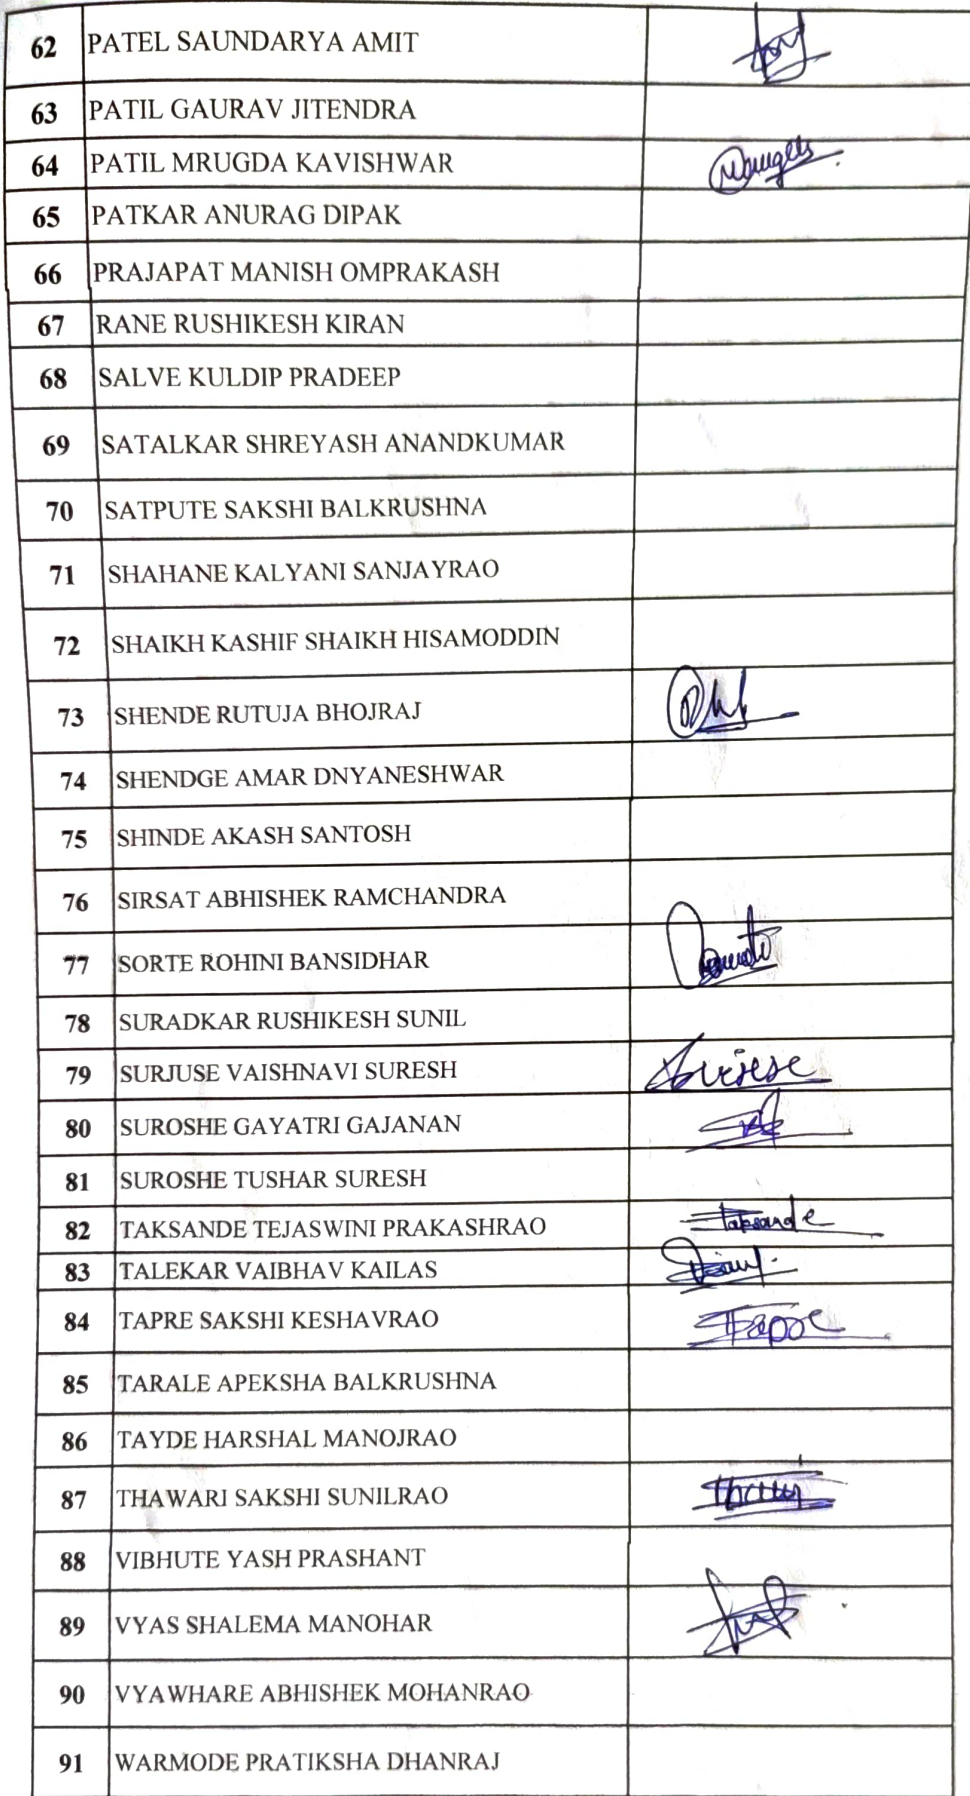 62 PATEL SAUNDARYA AMIT
63 PATIL GAURAV JITENDRA
64 PATIL MRUGDA KAVISHWAR
65 PATKAR ANURAG DIPAK
66 PRAJAPAT MANISH OMPRAKASH
67 RANE RUSHIKESH KIRAN
68 SALVE KULDIP PRADEEP
69 SATALKAR SHREYASH ANANDKUMAR
70 SATPUTE SAKSHI BALKRUSHNA
71 SHAHANE KALYANI SANJAYRAO
72 SHAIKH KASHIF SHAIKH HISAMODDIN
73 SHENDE RUTUJA BHOJRAJ
74 SHENDGE AMAR DNYANESHWAR
75 SHINDE AKASH SANTOSH
76 SIRSAT ABHISHEK RAMCHANDRA
77 SORTE ROHINI BANSIDHAR
78 SURADKAR RUSHIKESH SUNIL
79 SURJUSE VAISHNAVI SURESH
80 SUROSHE GAYATRI GAJANAN
81 SUROSHE TUSHAR SURESH
82 TAKSANDE TEJASWINI PRAKASHRAO Taksande
83 TALEKAR VAIBHAV KAILAS
84 TAPRE SAKSHI KESHAVRAO
85 TARALE APEKSHA BALKRUSHNA
86 TAYDE HARSHAL MANOJRAO
87 THAWARI SAKSHI SUNILRAO
88 VIBHUTE YASH PRASHANT
89 VYAS SHALEMA MANOHAR
90 VYAWHARE ABHISHEK MOHANRAO
91 WARMODE PRATIKSHA DHANRAJ